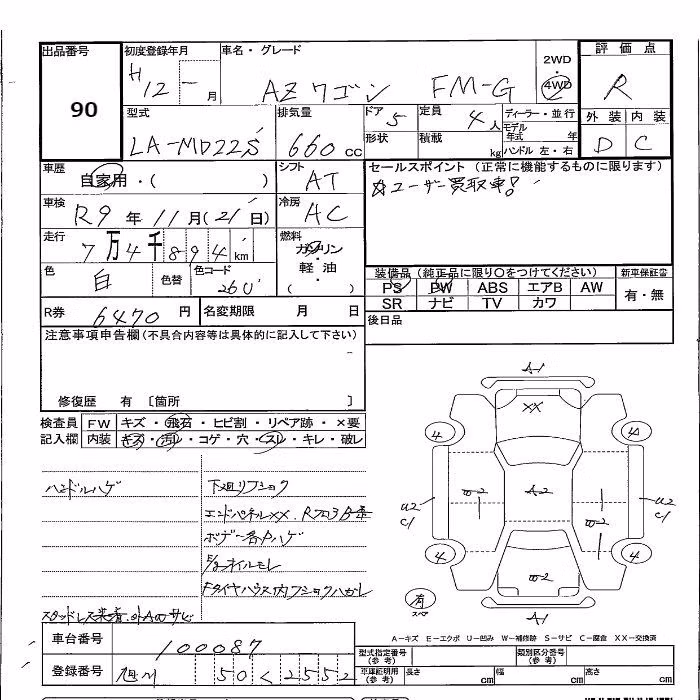 出品番号
90
初度登録年月
H12 - 月
車名・グレード
AZワゴン FM-G
2WD
4WD
評価点
R
型式
LA-MD22S
排気量
660 cc
ドア 5
定員 4 人
形状
積載 kg
ディーラー・並行
モデル年式 年
ハンドル 左・右
外装 内装
D C
車歴
自家用・( )
シフト
AT
セールスポイント (正常に機能するものに限ります)
☆ユーザー買取車!
車検
R9 年 11 月 (21 日)
冷房
AC
走行
7万4千894 km
燃料
ガソリン
軽・油
( )
色
白
色替
色コード
26U
装備品 (純正品に限り○をつけてください)
新車保証書
PS PW ABS エアB AW
SR ナビ TV カワ
有・無
R券 6470 円
名変期限 月 日
後日品
注意事項申告欄 (不具合内容等は具体的に記入して下さい)
修復歴 有 〔箇所 〕
検査員
記入欄
FW キズ・飛石・ヒビ割・リペア跡・×要
内装 キズ・汚れ・コゲ・穴・スレ・キレ・破レ
ハンドルハゲ
下廻りフショク
エンドパネルXX.
ボデー各ハゲ
オイルモレ
Fタイヤハウス内フショク
スタッドレス装着
A1
XX
4 4
A2
U2
C1
U2
C1
4 4
有
スペア
A1
A－キズ E－エクボ U－凹み W－補修跡 S－サビ C－腐食 XX－交換済
車台番号
100087
登録番号
旭川 50 く 2552
型式指定番号
(参考)
類別区分番号
(参考)
車庫証明用
(参考)
長さ cm
幅 cm
高さ cm